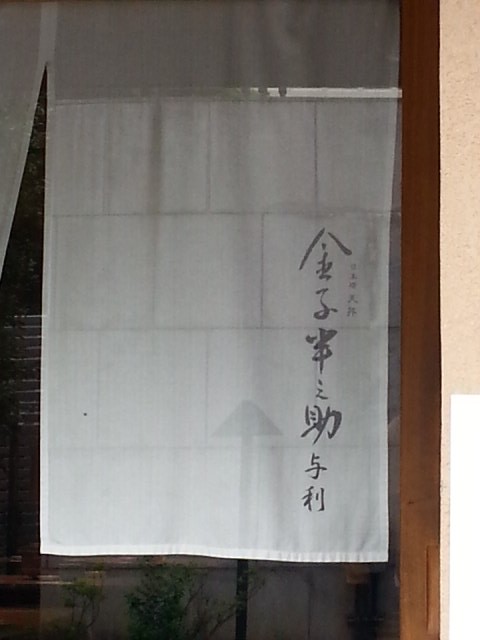 日本橋 天丼
金子半之助
与利